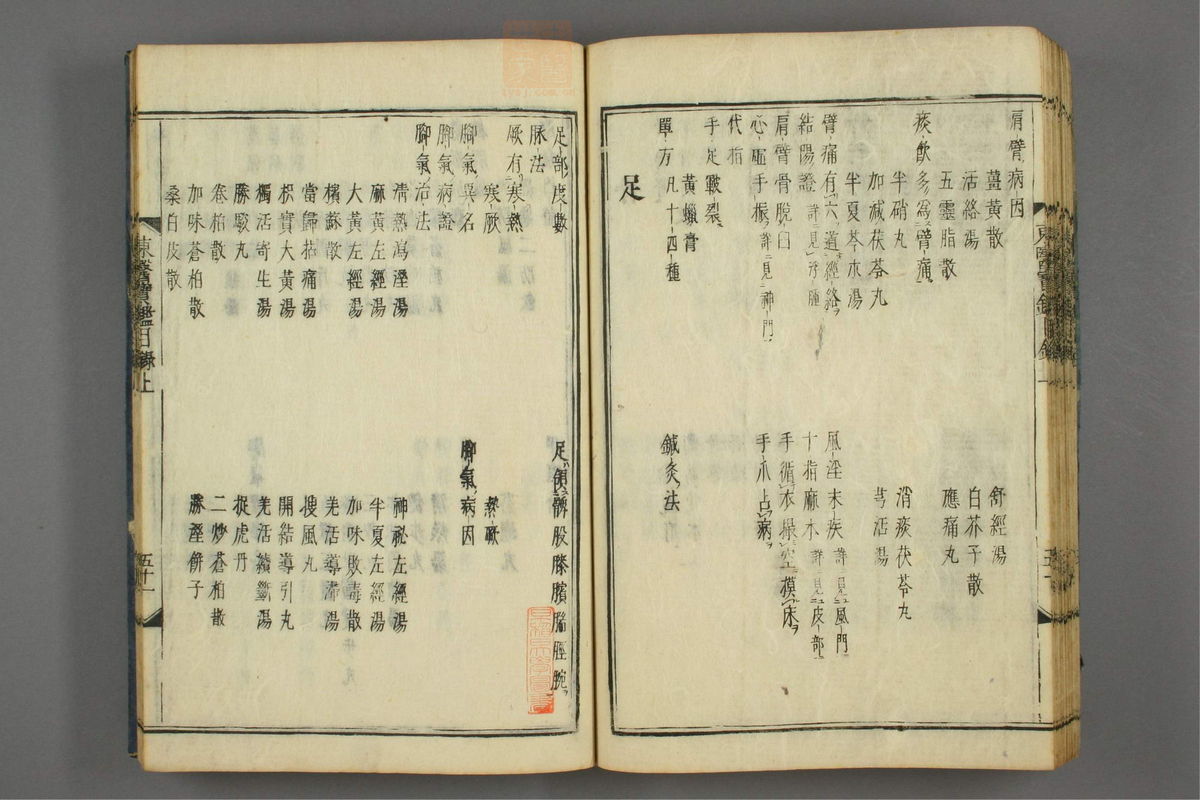 肩臂病因
薑黃散
舒經湯
活絡湯
白芥子散
五靈脂散
應痛丸
痰飲多爲臂痛
半硝丸
消痰茯苓丸
加減茯苓丸
芎活湯
半夏苓朮湯
臂痛有六道經絡
風淫末疾 詳見風門
結陽證
十指麻木 詳見皮部
肩臂骨脫臼
手循衣撮空摸床
心虛手振 詳見神門
手爪占病
代指
手足皸裂
黃蠟膏
單方 凡十四種
鍼灸法
足
足部度數
脉法
厥有寒熱
寒厥
熱厥
脚氣異名
脚氣病因
脚氣病證
脚氣治法
淸熱瀉濕湯
神祕左經湯
麻黃左經湯
半夏左經湯
大黃左經湯
加味敗毒散
檳蘇散
羌活導滯湯
當歸拈痛湯
搜風丸
枳實大黃湯
開結導引丸
獨活寄生湯
羌活續斷湯
勝駿丸
捉虎丹
卷柏散
二炒蒼柏散
加味蒼柏散
勝濕餠子
桑白皮散
東醫寶鑑目錄上
五十一